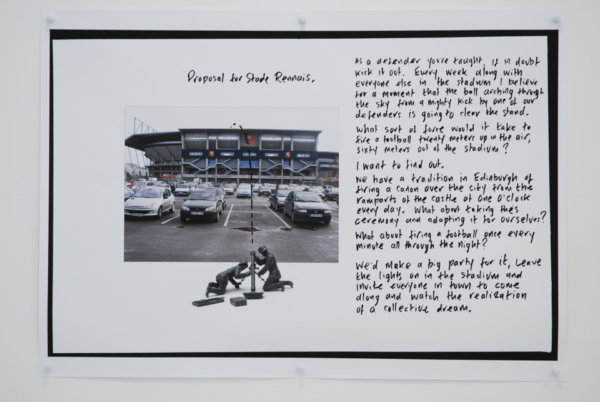 Proposal for Stade Rennais.
As a defender you're taught, if in doubt
kick it out. Every week along with
everyone else in the stadium I believe
for a moment that the ball arching through
the sky from a mighty kick by one of our
defenders is going to clear the stand.
What sort of force would it take to
fire a football twenty meters up in the air,
sixty meters out of the stadium?
I want to find out.
We have a tradition in Edinburgh of
firing a canon over the city from the
ramparts of the castle at One O'clock
every day. What about taking this
ceremony and adapting it for ourselves?
What about firing a football once every
minute all through the night?
We'd make a big party for it, leave
the lights on in the stadium and
invite everyone in town to come
along and watch the realization
of a collective dream.